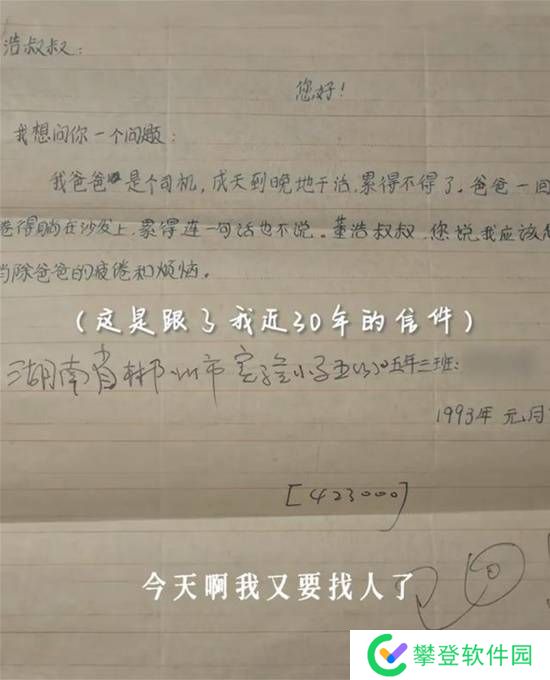 浩叔叔：
您好！
我想问你一个问题：
我爸爸是个司机，成天到晚地干活，累得不得了。爸爸一回
倦得躺在沙发上，累得连一句话也不说。董浩叔叔，您说我应该怎
消除爸爸的疲倦和烦恼。
（这是跟了我近30年的信件）
湖南省郴州市实验小学五（3）五年三班：
1993年 元月
[423000]
今天啊我又要找人了
攀登软件园